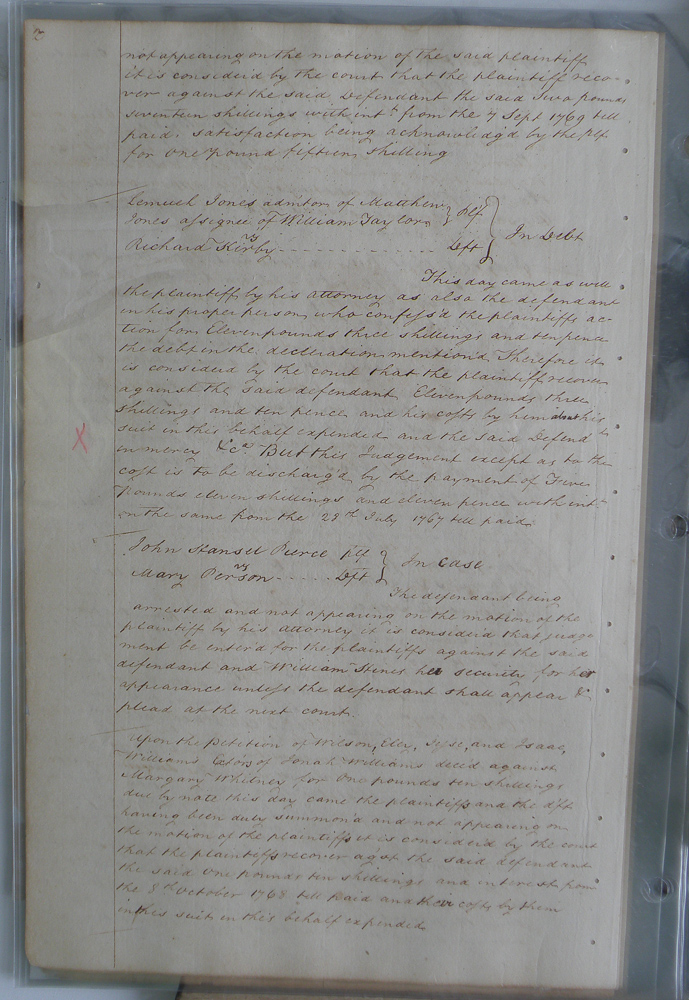 2
not appearing on the motion of the said plaintiff
it is considerd by the court that the plaintiff reco-
ver against the said Defendant the said Two pounds
seventeen shillings with intt from the 7 Sept 1769 till
paid. satisfaction being acknowledg'd by the plf
for One pound fifteen shilling
Lemuel Jones admitor of Matthew
Jones assignee of William Taylor plf
vs In Debt
Richard Kirby Dft
This day came as well
the plaintiff by his attorney as also the defendant
in his proper person who confess'd the plaintiffs ac-
tion for Eleven pounds three shillings and ten pence
the debt in the decleration mention'd Therefore it
is considerd by the court that the plaintiff recover
against the said defendant Eleven pounds three
shillings and ten pence and his costs by him about his
suit in this behalf expended and the said Defendt
in mercy &ca. But this Judgement except as to the
cost is to be discharg'd by the payment of Five
pounds eleven shillings and eleven pence with intt
on the same from the 28th July 1767 till paid
John Hansel Pierce plf
vs In Case
Mary Person Dft
The defendant being
arrested and not appearing on the motion of the
plaintiff by his attorney it is considerd that judge
ment be enter'd for the plaintiffs against the said
defendant and William Hines her security for her
appearance unless the defendant shall appear &
plead at the next court.
Upon the Petition of Wilson, Eley, and Isaac
Williams Exbors of Jonah Williams decid against
Margary Whitney for One pounds ten shillings
due by note this day came the plaintiffs and the dft
having been duly summon'd and not appearing on
the motion of the plaintiffs it is considerd by the court
that the plaintiffs recover agst the said defendant
the said One pounds ten shillings and interest from
the 8th October 1768 till paid and their costs by them
in this suit in this behalf expended
X